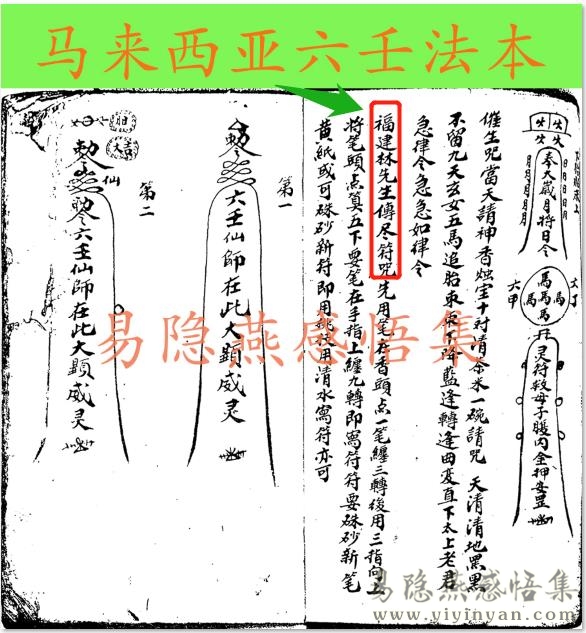 马来西亚六壬法本
奉太歲月將日令
六丁
六甲
馬馬馬馬
灵符救母子腹内金押安罡
催生咒當天請神香燭宝十封清茶米一碗請咒 天清清地黑黑
不留九天玄女五馬追胎
太上老君
急律令急急如律令
福建林先生傳尽符咒先用笔在香頭点一笔纏三轉後用三指向上
将笔頭点算五下要笔在手指上纏九轉即寫符符要硃砂新笔
黄紙或可硃砂新符即用桃枝用清水寫符亦可
第一
勅六壬仙師在此大顕威灵
第二
仙
勅令六壬仙師在此大顕威灵
易隐燕感悟集
易隐燕感悟集
www.yiyinyan.com